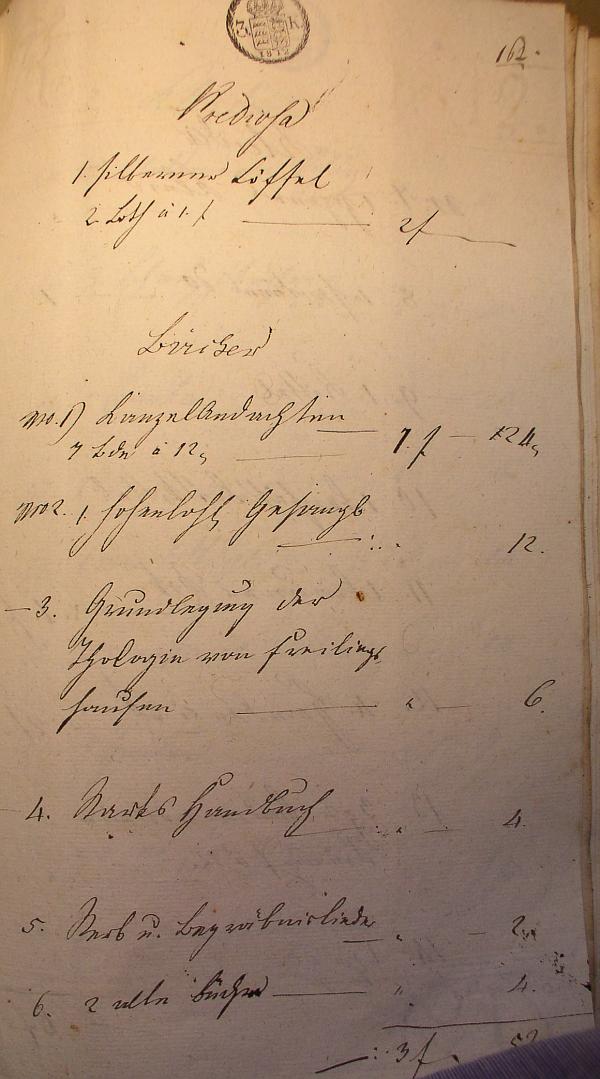 3. K.
1812
162.
Prediosa
1. silberner Löffel
2. Loth à 1. f — 2 f
Bücher
No. 1) KanzelAndachten
7 Bde à 12 — 1. f — 24
No 2. 1. hohenloh. Gesangb
12.
— 3. Grundlegung der
Theologie von Freilings
hausen — " — 6.
4. Starks Handbuch
" — 4.
5. Sterb u. Begräbnislieder
" — 2
6. 2 alte Bücher — " 4.
3 f. 52